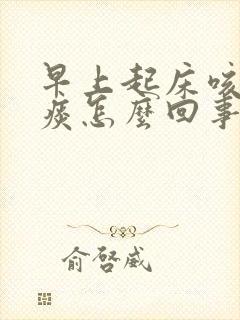 早上起床咳
痰怎麼回事
俞啓威